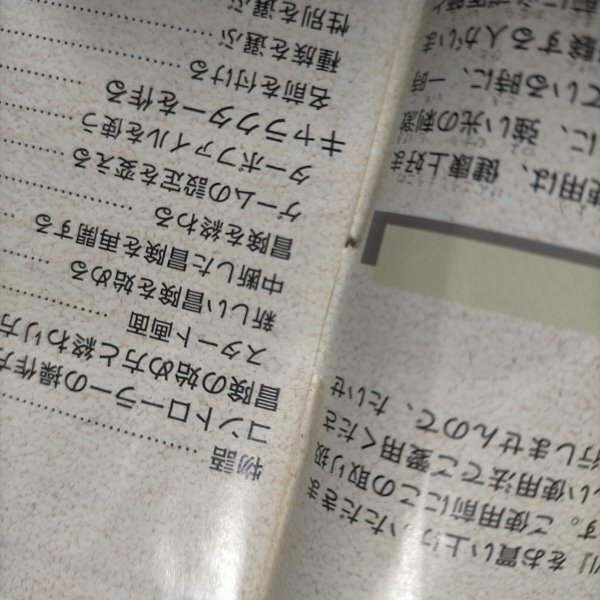 物語
コントローラーの操作方
冒険の始め方と終わり方
スタート画面
新しい冒険を始める
中断した冒険を再開する
冒険を終わる
ゲームの設定を変える
ターボファイルを使う
キャラクターを作る
名前を付ける
種族を選ぶ
性別を選ぶ
』をお買い上げいただきま
す。ご使用前にこの取り扱
い使用法でご愛用くださ
行しませんので、たいせ
使用は、健康上好ま
に、強い光の刺激
ている時に、一時
験する人がいま